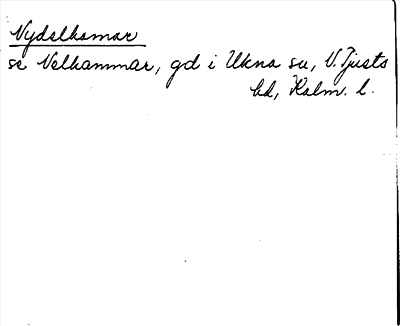 Nydelhamar
se Nelhammar, gd i Ukna sn, N. Tjusts
hd, Kalm. l.